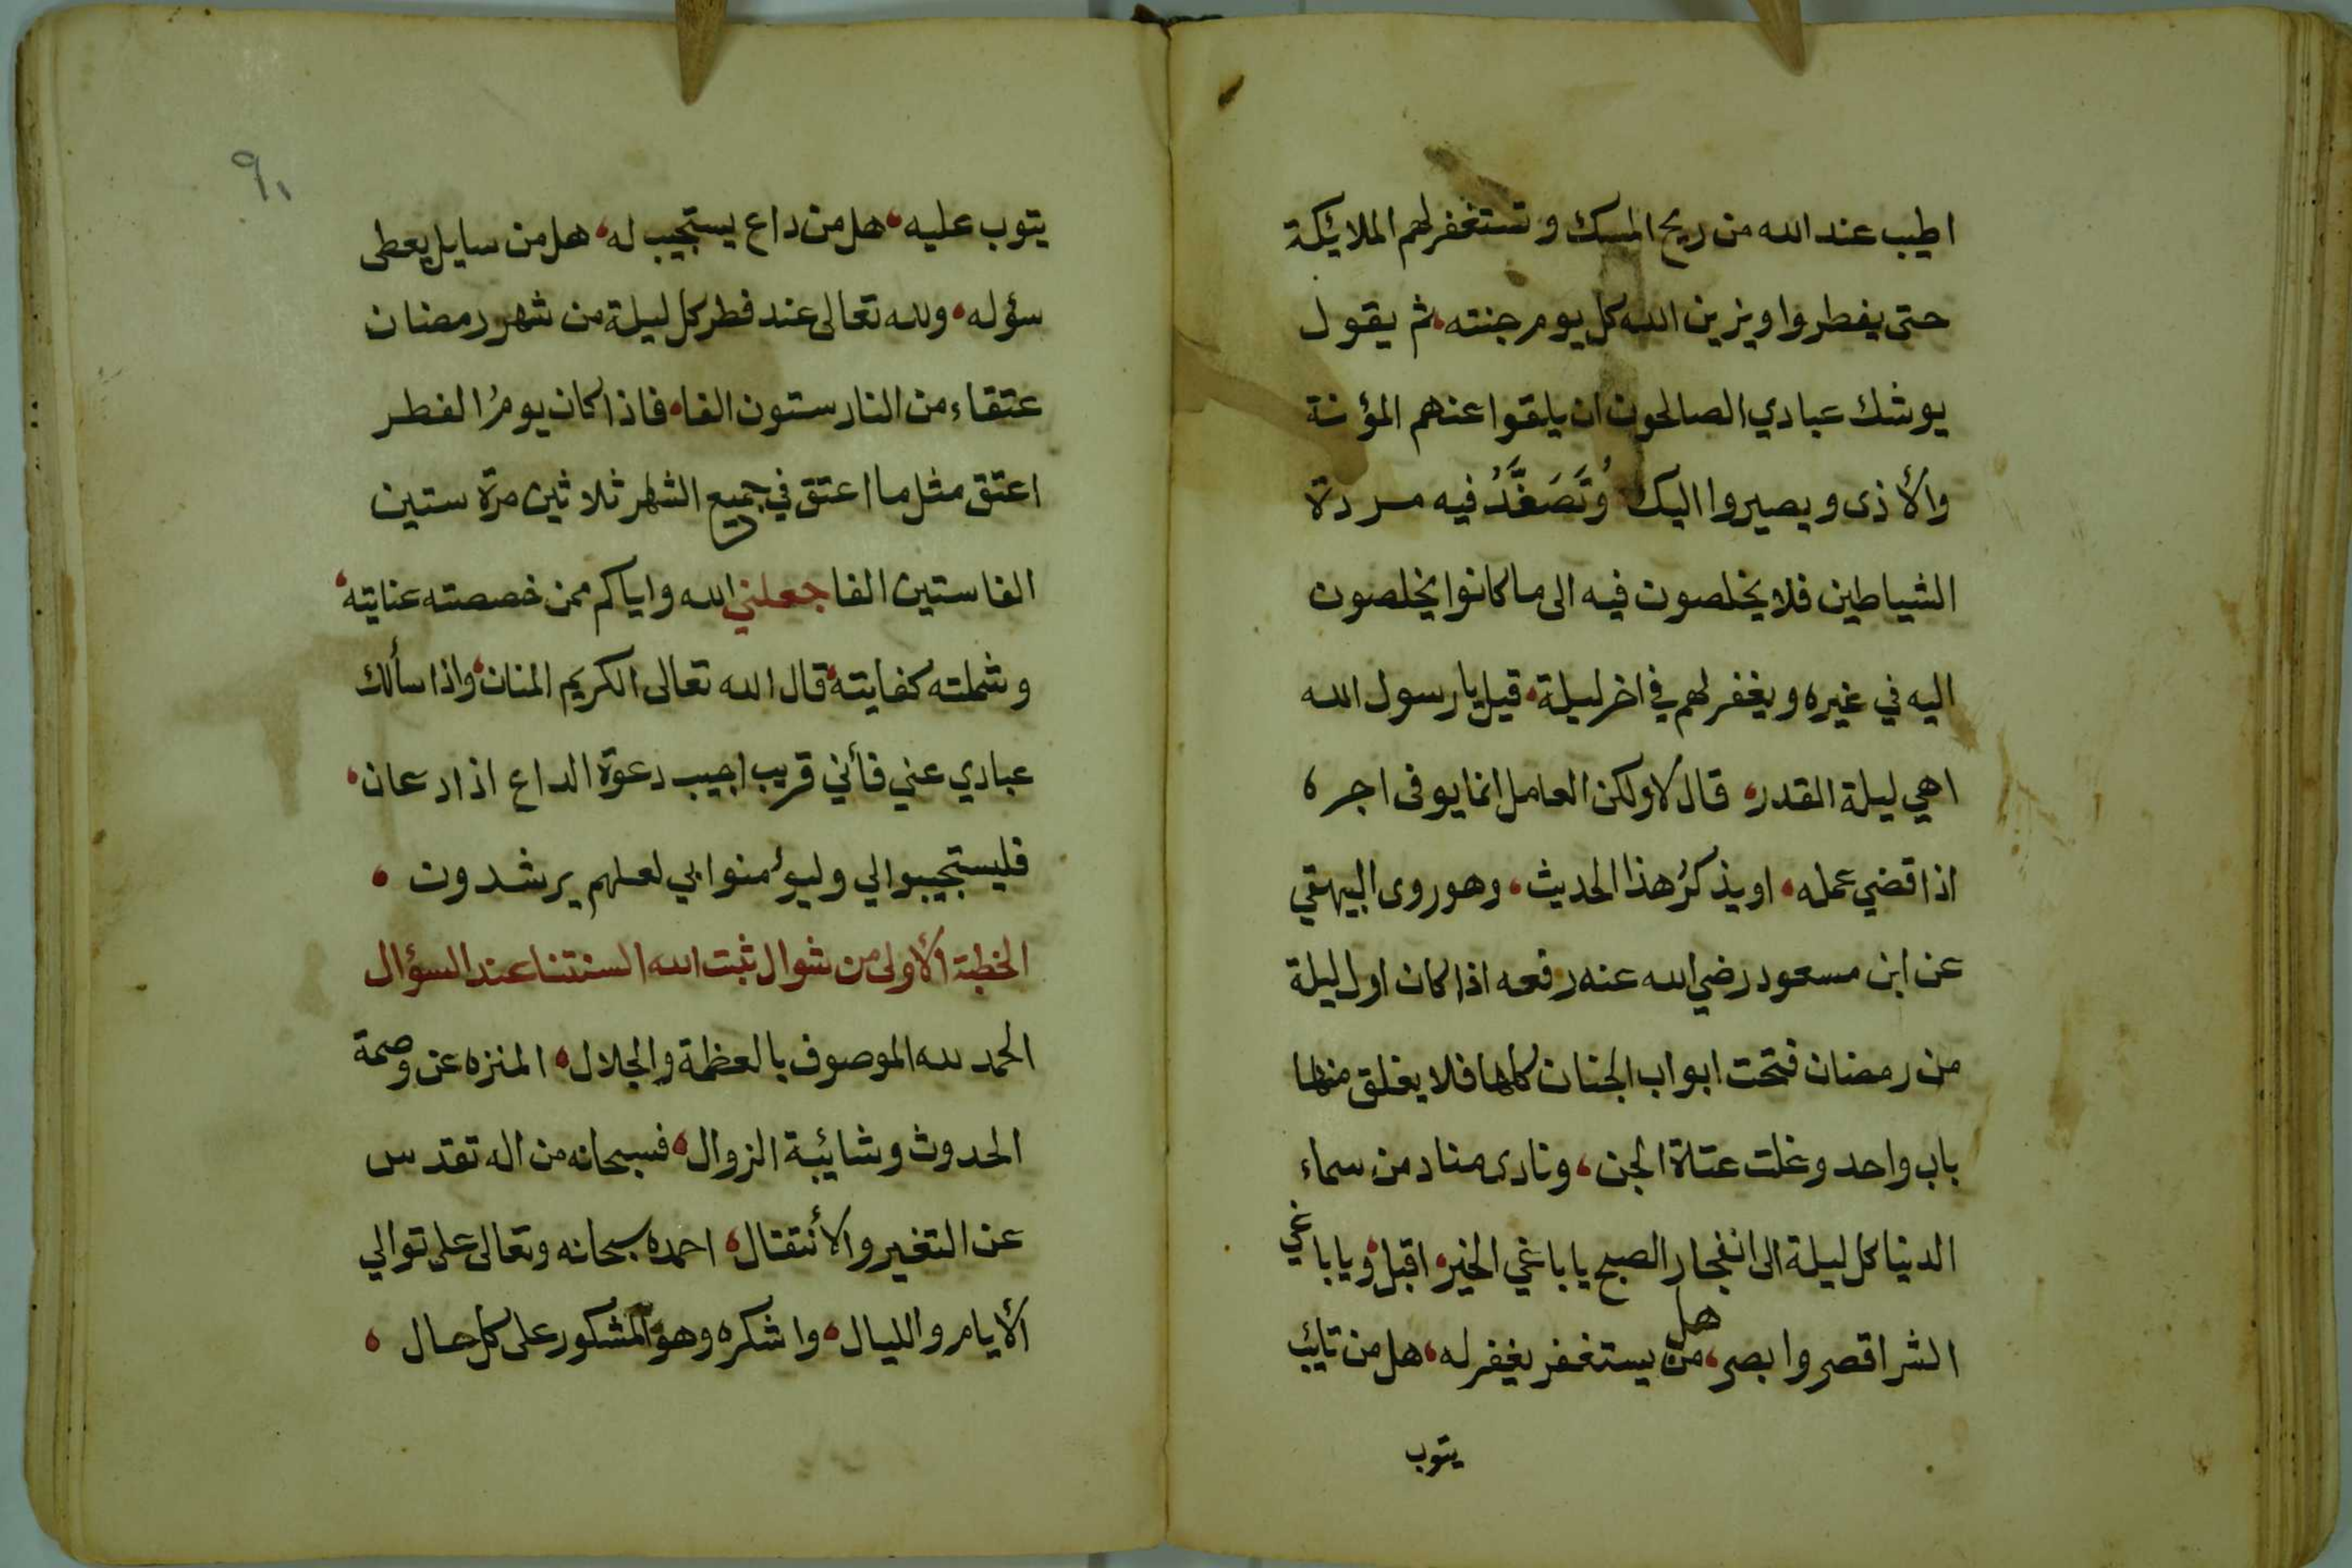 اطيب عند الله من ريح المسك وتستغفر لهم الملائكة
حتى يفطروا ويزين الله كل يوم جنته، ثم يقول
يوشك عبادي الصالحون ان يلقوا عنهم المؤنة
والأذى ويصيروا اليك وَتُصَفَّدُ فيه مردة
الشياطين فلا يخلصون فيه الى ما كانوا يخلصون
اليه في غيره ويغفر لهم في اخر ليلة، قيل يا رسول الله
اهي ليلة القدر، قال لا ولكن العامل انما يوفى اجره
اذا قضي عمله، او يذكرُ هذا الحديث، وهو روى البيهقي
عن ابن مسعود رضي الله عنه رفعه اذا كان اول ليلة
من رمضان فتحت ابواب الجنان كلها فلا يغلق منها
باب واحد وغلت عتاة الجن، ونادى مناد من سماء
الدنيا كل ليلة الى انفجار الصبح يا باغي الخير، اقبل، ويا باغي
الشر اقصر وابصر، هل من يستغفر يغفر له، هل من تايب
يتوب
٩١
يتوب عليه، هل من داع يستجيب له، هل من سايل يعطى
سؤله، ولله تعالى عند فطر كل ليلة من شهر رمضان
عتقاء من النار ستون الفا، فاذا كان يومُ الفطر
اعتق مثل ما اعتق في جميع الشهر ثلاثين مرة ستين
الفا ستين الفا جعلني الله واياكم ممن خصصته عنايته،
وشملته كفايته، قال الله تعالى الكريم المنان، واذا سألك
عبادي عني فأني قريب اجيب دعوة الداع اذا دعان،
فليستجيبوا لي وليؤمنوا بي لعلهم يرشدون ،
الخطبة الأولى من شوال ثبت الله السنتنا عند السؤال
الحمد لله الموصوف بالعظمة والجلال، المنزه عن وصمة
الحدوث وشائبة الزوال، فسبحانه من اله تقدس
عن التغير والأنتقال، احمده سبحانه وتعالى على توالي
الأيام والليال، واشكره وهو المشكور على كل حال ،